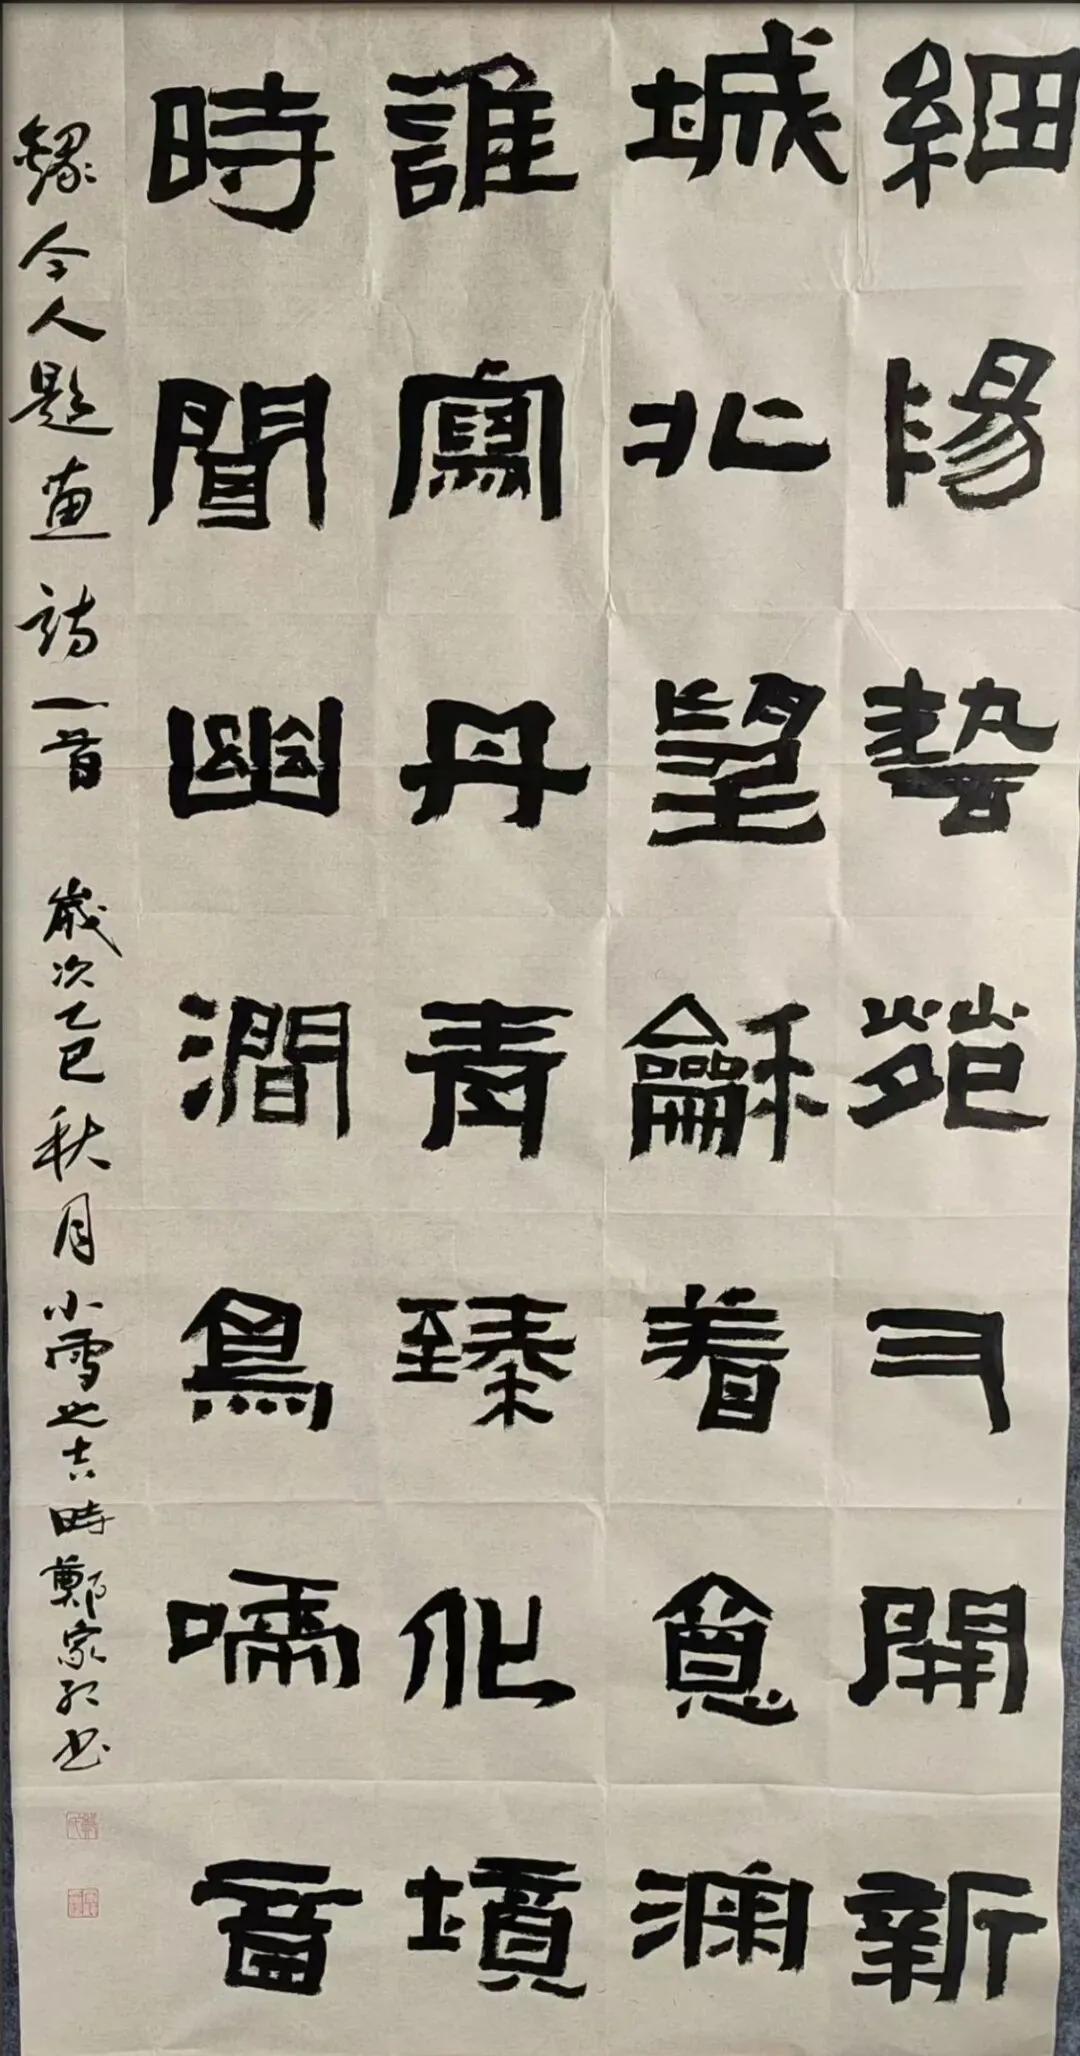 細陽藝苑又開新
城北望龢着意深
誰寫丹青臻化境
時聞幽澗鳥嚅音
錄今人題畫詩一首 歲次乙巳秋月小雪之吉時鄭家书